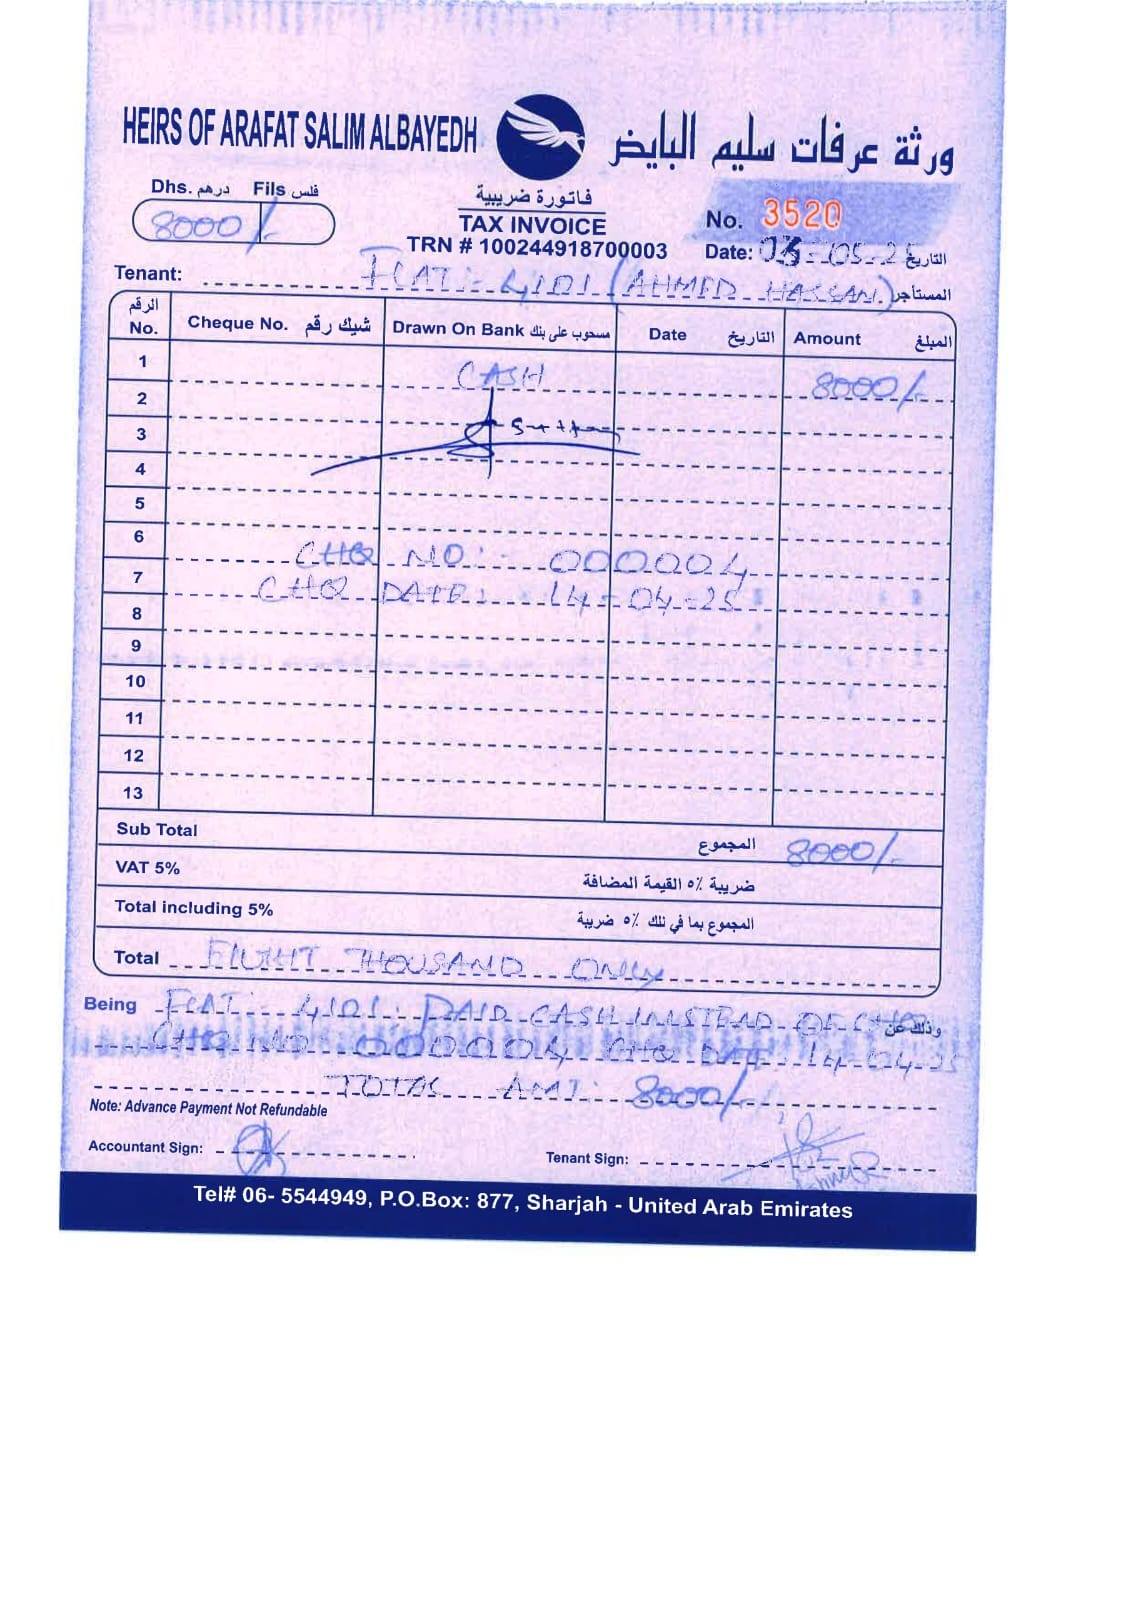 HEIRS OF ARAFAT SALIM ALBAYEDH ورثة عرفات سليم البايض
Dhs. درهم Fils فلس
8000/-
فاتورة ضريبية
TAX INVOICE
TRN # 100244918700003
No. 3520
Date: 03-05-25 التاريخ
Tenant: FLAT:- 4101 (AHMED HASSAN) المستأجر
الرقم No. Cheque No. شيك رقم Drawn On Bank مسحوب على بنك Date التاريخ Amount المبلغ
1 CASH 8000/-
2
3
4
5
6 CHQ NO:- 000004
7 CHQ DATE: 14-04-25
8
9
10
11
12
13
Sub Total المجموع 8000/-
VAT 5% ضريبة ٥٪ القيمة المضافة
Total including 5% المجموع بما في تلك ٥٪ ضريبة
Total EIGHT THOUSAND ONLY
Being FLAT:- 4101. PAID CASH INSTEAD OF CHQ وذلك عن
CHQ NO 000004 CHQ DAT 14-04-25
TOTAL AMT: 8000/-
Note: Advance Payment Not Refundable
Accountant Sign:
Tenant Sign:
Tel# 06- 5544949, P.O.Box: 877, Sharjah - United Arab Emirates